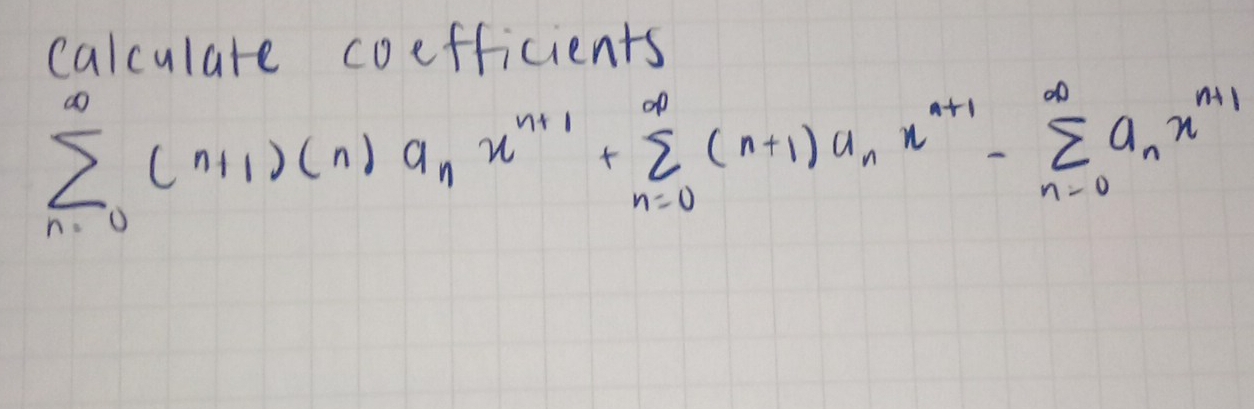 Calculate coefficients
∞ ∑ n=0 (n+1)(n) aₙ xⁿ⁺¹ + ∞ ∑ n=0 (n+1) aₙ xⁿ⁺¹ - ∞ ∑ n=0 aₙ xⁿ⁺¹